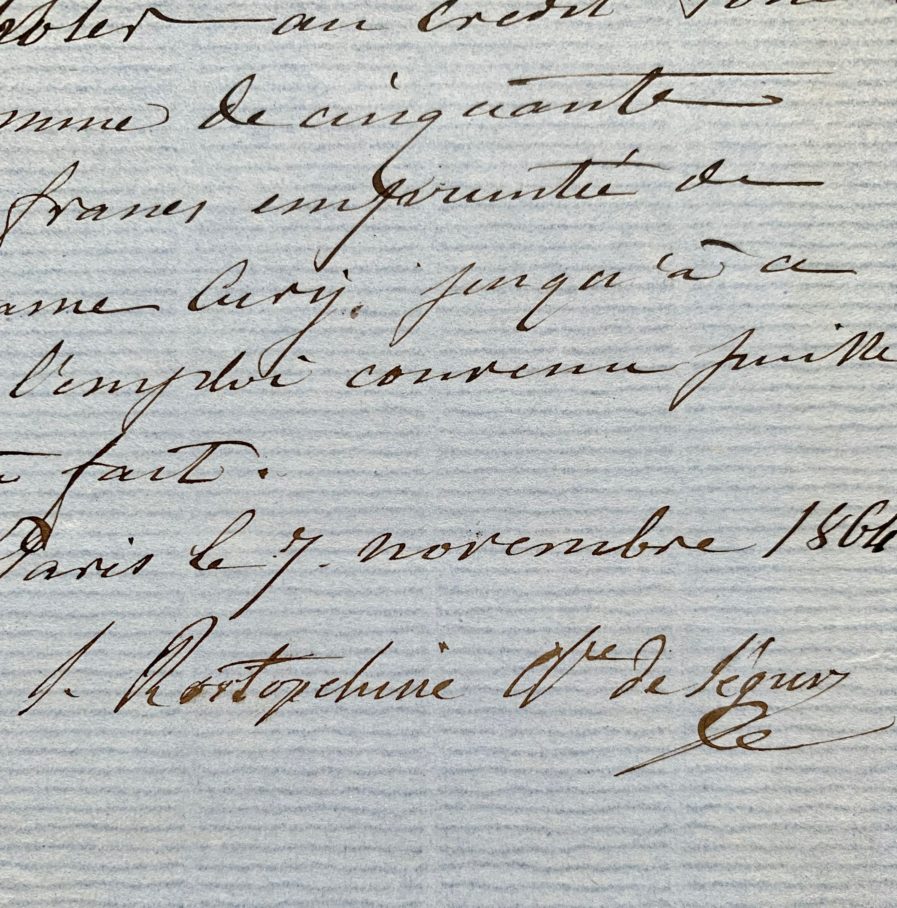 au crédit
mme de cinquante
francs empruntée de
ame Cury, jusqu'à a
l'emploi convenu puisse
fait.
Paris le 7. novembre 1864
S. Rostopchine Ctsse de Ségur